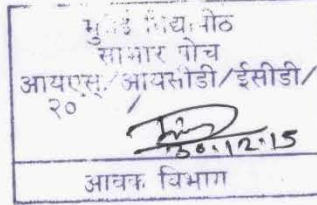 विद्यापीठ
साभार पोच
आयएस्/आयसीडी/ईसीडी/
२० /
30.12.15
आवक विभाग